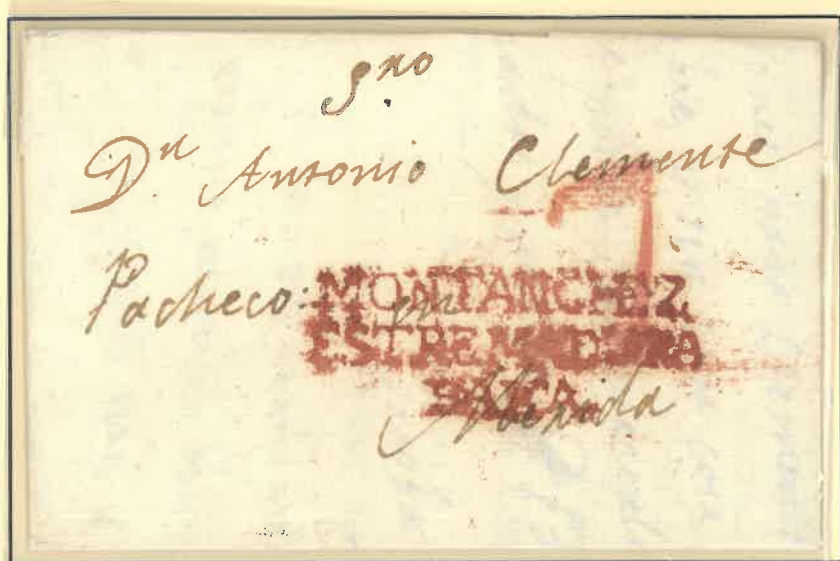 S.no
Dn Antonio Clemente
7
Pacheco: en
MONTANCHEZ
ESTREMADURA
BAXA
Merida